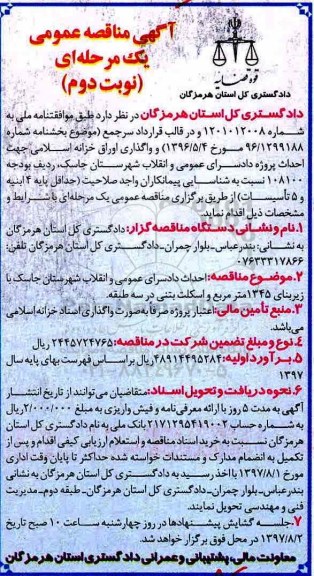 آگهی مناقصه عمومی
یک مرحله‌ای
(نوبت دوم)
قوه قضاییه
دادگستری کل استان هرمزگان
دادگستری کل استان هرمزگان در نظر دارد طبق موافقتنامه ملی به
شماره ۱۲۰۱۰۱۲۰۰۸ و در قالب قرارداد سرجمع (موضوع بخشنامه شماره
۹۶/۱۲۹۹۱۸۸ مورخ ۱۳۹۶/۵/۴) و واگذاری اوراق خزانه اسلامی جهت
احداث پروژه دادسرای عمومی و انقلاب شهرستان جاسک، ردیف بودجه
۱۰۸۱۰۰ نسبت به شناسایی پیمانکاران واجد صلاحیت (حداقل پایه ۴ ابنیه
و ۵ تأسیسات) از طریق برگزاری مناقصه عمومی یک مرحله‌ای با شرایط و
مشخصات ذیل اقدام نماید.
۱.نام و نشانی دستگاه مناقصه گزار: دادگستری کل استان هرمزگان
به نشانی: بندرعباس-بلوار چمران-دادگستری کل استان هرمزگان تلفن:
۰۷۶۳۳۳۱۷۸۶۶
۲.موضوع مناقصه: احداث دادسرای عمومی و انقلاب شهرستان جاسک با
زیربنای ۱۳۴۵ متر مربع و اسکلت بتنی در سه طبقه.
۳.منبع تأمین مالی: اعتبار پروژه صرفا به صورت واگذاری اسناد خزانه اسلامی
می‌باشد.
۴.نوع و مبلغ تضمین شرکت در مناقصه: ۲۴۴۵۷۲۴۷۶۵ ریال.
۵.برآورد اولیه: ۴۸۹۱۴۴۹۵۲۸۴ ریال بر اساس فهرست بهای پایه سال
۱۳۹۷
۶.نحوه دریافت و تحویل اسناد: متقاضیان می‌توانند از تاریخ انتشار
آگهی به مدت ۵ روز با ارائه معرفی‌نامه و فیش واریزی به مبلغ ۲/۰۰۰/۰۰۰ ریال
به شماره حساب ۲۱۷۱۲۹۵۴۱۹۰۰۲ بانک ملی به نام دادگستری کل استان
هرمزگان نسبت به خرید اسناد مناقصه و استعلام ارزیابی کیفی اقدام و پس از
تکمیل به انضمام مدارک و مستندات خواسته شده حداکثر تا پایان وقت اداری
مورخ ۱۳۹۷/۸/۱ با اخذ رسید به دادگستری کل استان هرمزگان به نشانی
بندرعباس-بلوار چمران-دادگستری کل استان هرمزگان-طبقه دوم-مدیریت
فنی و مهندسی تحویل نمایند.
۷-جلسه گشایش پیشنهادها در روز چهارشنبه ساعت ۱۰ صبح تاریخ
۱۳۹۷/۸/۲ در محل فوق برگزار خواهد شد.
معاونت مالی، پشتیبانی و عمرانی دادگستری استان هرمزگان